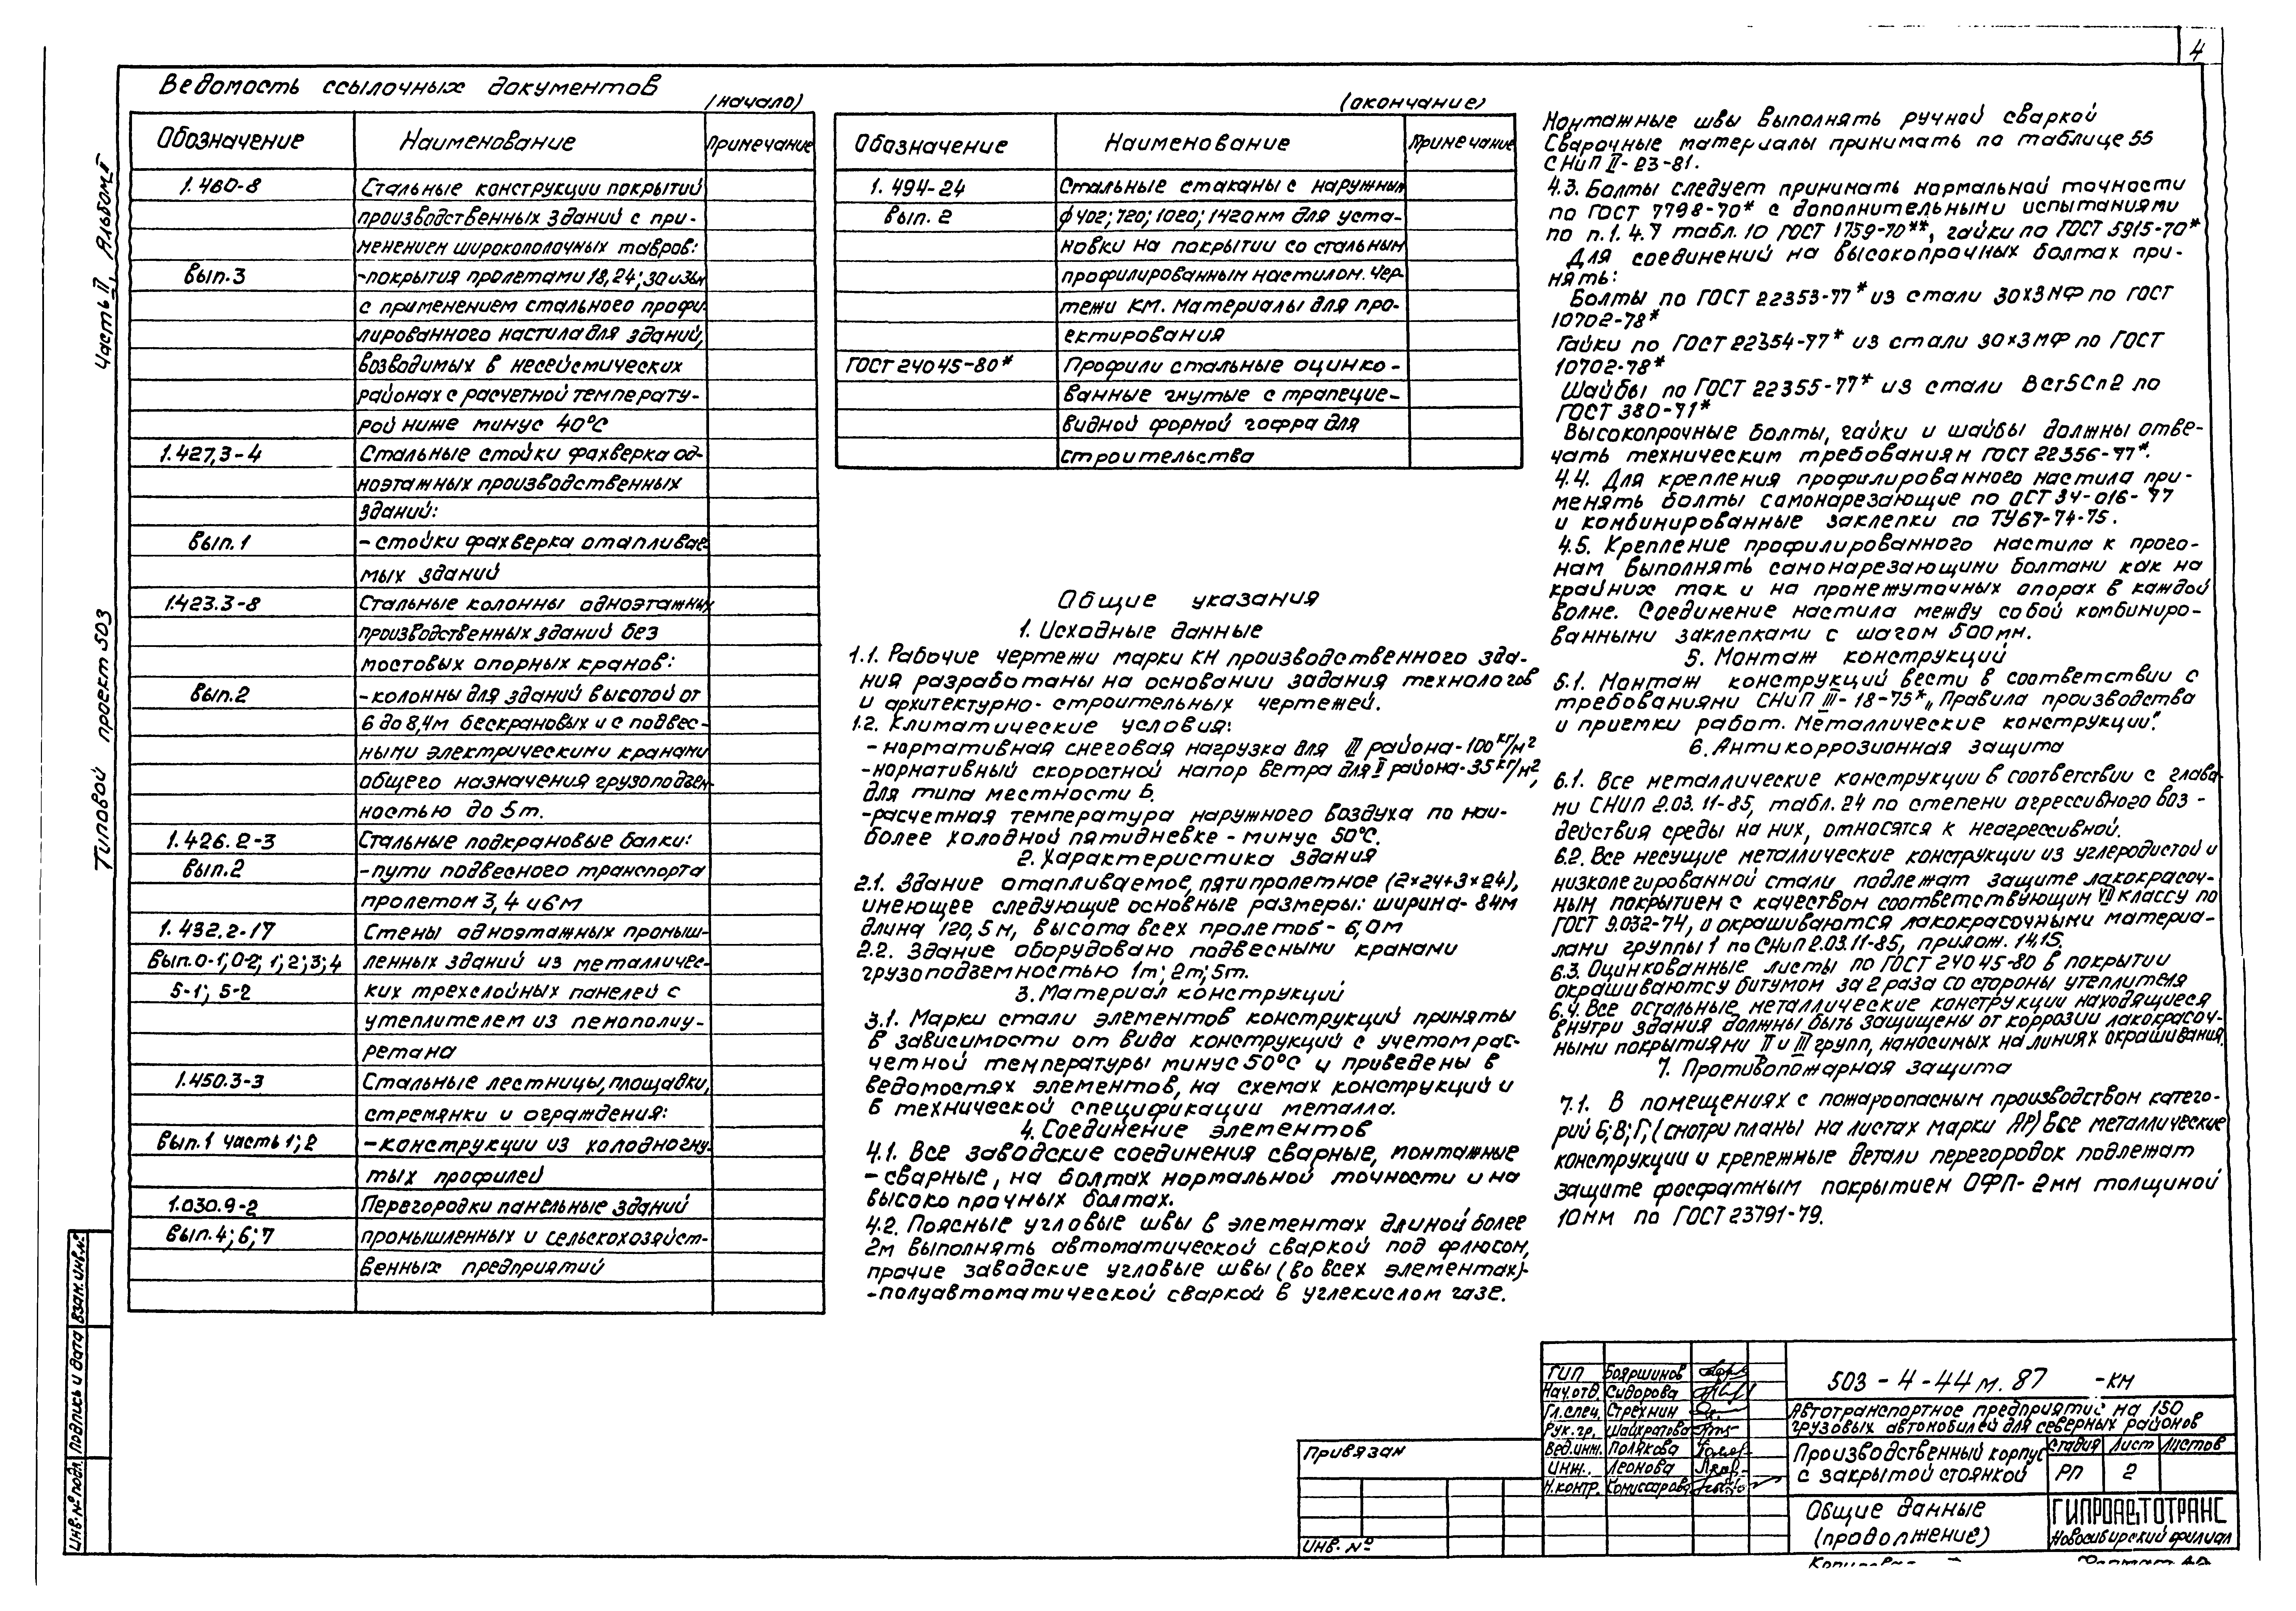 4
Ведомость ссылочных документов
(начало)
Обозначение Наименование Примечание
1.460-8 Стальные конструкции покрытий
производственных зданий с при-
менением широкополочных тавров:
Вып.3 -покрытия пролетами 18,24;30и36м
с применением стального профи
лированного настила для зданий,
возводимых в несейсмических
районах с расчетной температу-
рой ниже минус 40°С
1.427,3-4 Стальные стойки фахверка од-
ноэтажных производственных
зданий:
Вып.1 - стойки фахверка отапливае-
мых зданий
1.423.3-8 Стальные колонны одноэтажных
производственных зданий без
мостовых опорных кранов:
Вып.2 -колонны для зданий высотой от
6 до 8,4м бескрановых и с подвес-
ными электрическими кранами
общего назначения грузоподъем-
ностью до 5т.
1.426.2-3 Стальные подкрановые балки:
Вып.2 -пути подвесного транспорта
пролетом 3,4 и 6м
1.432.2-17 Стены одноэтажных промыш-
Вып.0-1;0-2; 1;2;3;4 ленных зданий из металличес-
5-1; 5-2 ких трехслойных панелей с
утеплителем из пенополиу-
ретана
1.450.3-3 Стальные лестницы, площадки,
стремянки и ограждения:
Вып.1 часть 1;2 -конструкции из холодногну-
тых профилей
1.030.9-2 Перегородки панельные зданий
Вып.4;6;7 промышленных и сельскохозяйст-
венных предприятий
(окончание)
Обозначение Наименование Примечание
1.494-24 Стальные стаканы с наружным
вып.2 ф 402; 720; 1020; 1420мм для уста-
новки на покрытии со стальным
профилированным настилом. Чер-
тежи КМ. Материалы для про-
ектирования
ГОСТ 24045-80* Профили стальные оцинко-
ванные гнутые с трапецие-
видной формой гофра для
строительства
Общие указания
1. Исходные данные
1.1. Рабочие чертежи марки КМ производственного зда-
ния разработаны на основании задания технологов
и архитектурно-строительных чертежей.
1.2. Климатические условия:
-нормативная снеговая нагрузка для III района-100 кг/м2
-нормативный скоростной напор ветра для II района-35 кг/м2,
для типа местности Б.
-расчетная температура наружного воздуха по наи-
более холодной пятидневке - минус 50°С.
2. Характеристика здания
2.1. Здание отапливаемое, пятипролетное (2×24+3×24),
имеющее следующие основные размеры: ширина-84м
длина 120,5м, высота всех пролетов - 6,0м
2.2. Здание оборудовано подвесными кранами
грузоподъемностью 1т; 2т; 5т.
3. Материал конструкций
3.1. Марки стали элементов конструкций приняты
в зависимости от вида конструкций с учетом рас-
четной температуры минус 50°С и приведены в
ведомостях элементов, на схемах конструкций и
в технической спецификации металла.
4. Соединение элементов
4.1. Все заводские соединения сварные, монтажные
-сварные, на болтах нормальной точности и на
высокопрочных болтах.
4.2. Поясные угловые швы в элементах длиной более
2м выполнять автоматической сваркой под флюсом,
прочие заводские угловые швы (во всех элементах)-
-полуавтоматической сваркой в углекислом газе.
Монтажные швы выполнять ручной сваркой
Сварочные материалы принимать по таблице 55
СНиП II-23-81.
4.3. Болты следует принимать нормальной точности
по ГОСТ 7798-70* с дополнительными испытаниями
по п.1.4.7 табл.10 ГОСТ 1759-70**, гайки по ГОСТ 5915-70*
Для соединений на высокопрочных болтах при-
нять:
Болты по ГОСТ 22353-77* из стали 30Х3МФ по ГОСТ
10702-78*
Гайки по ГОСТ 22354-77* из стали 30×3МФ по ГОСТ
10702-78*
Шайбы по ГОСТ 22355-77* из стали Вст5Сп2 по
ГОСТ 380-71*
Высокопрочные болты, гайки и шайбы должны отве-
чать техническим требованиям ГОСТ 22356-77*.
4.4. Для крепления профилированного настила при-
менять болты самонарезающие по ОСТ 34-016-77
и комбинированные заклепки по ТУ67-74-75.
4.5. Крепление профилированного настила к прого-
нам выполнять самонарезающими болтами как на
крайних так и на промежуточных опорах в каждой
волне. Соединение настила между собой комбиниро-
ванными заклепками с шагом 500мм.
5. Монтаж конструкций
5.1. Монтаж конструкций вести в соответствии с
требованиями СНиП III-18-75* „Правила производства
и приемки работ. Металлические конструкции".
6. Антикоррозионная защита
6.1. Все металлические конструкции в соответствии с глава-
ми СНиП 2.03.11-85, табл.24 по степени агрессивного воз-
действия среды на них, относятся к неагрессивной.
6.2. Все несущие металлические конструкции из углеродистой и
низколегированной стали подлежат защите лакокрасоч-
ным покрытием с качеством соответствующим VII классу по
ГОСТ 9.032-74, и окрашиваются лакокрасочными материа-
лами группы 1 по СНиП 2.03.11-85, прилож. 14,15.
6.3. Оцинкованные листы по ГОСТ 24045-80 в покрытии
окрашиваются битумом за 2 раза со стороны утеплителя
6.4. Все остальные металлические конструкции находящиеся
внутри здания должны быть защищены от коррозии лакокрасоч-
ными покрытиями II и III групп, наносимых на линиях окрашивания.
7. Противопожарная защита
7.1. В помещениях с пожароопасным производством катего-
рий Б;В;Г, (смотри планы на листах марки АР) все металлические
конструкции и крепежные детали перегородок подлежат
защите фосфатным покрытием ОФП-2мм толщиной
10мм по ГОСТ 23791-79.
Типовой проект 503 Часть II Альбом I
Инв.№подл. Подпись и дата Взам.инв.№
Привязан
Инв. №
ГИП Бояршинов
Нач.отд. Сидорова
Гл.спец. Стрехнин
Рук.гр. Шайхратова
Вед.инж. Полякова
Инж. Леонова
Н.контр. Комиссарова
503-4-44м.87 -КМ
Автотранспортное предприятие на 150
грузовых автомобилей для северных районов
Производственный корпус
с закрытой стоянкой
Стадия Лист Листов
РП 2
Общие данные
(продолжение)
ГИПРОАВТОТРАНС
Новосибирский филиал